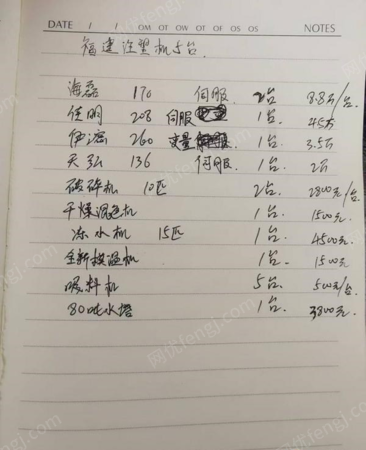 DATE / / OM OT OW OT OF OS OS NOTES
福建注塑机5台
海磊 170 伺服 2台 8.8万/台
佳明 208 伺服 1台 4.5万
伊之密 260 变量 1台 3.5万
天弘 136 伺服 1台 2万
破碎机 10匹 2台 2800元/台
干燥混色机 1台 1500元
冻水机 15匹 1台 4500元
全新模温机 1台 1500元
吸料机 5台 500元/台
80吨水塔 1台 3800元